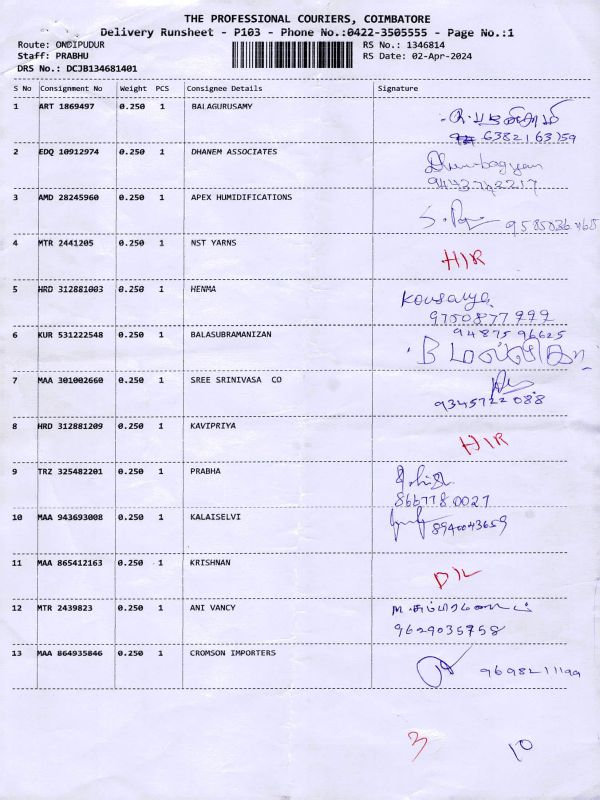 THE PROFESSIONAL COURIERS, COIMBATORE
Delivery Runsheet - P103 - Phone No.:0422-3505555 - Page No.:1
Route: ONDIPUDUR RS No.: 1346814
Staff: PRABHU RS Date: 02-Apr-2024
DRS No.: DCJB134681401
S No Consignment No Weight PCS Consignee Details Signature
1 ART 1869497 0.250 1 BALAGURUSAMY
6382163759
2 EDQ 10912974 0.250 1 DHANEM ASSOCIATES
3 AMD 28245960 0.250 1 APEX HUMIDIFICATIONS
4 MTR 2441205 0.250 1 NST YARNS H/R
5 HRD 312881003 0.250 1 HENMA Kousalya
9750877999
6 KUR 531222548 0.250 1 BALASUBRAMANIZAN 9487596625
7 MAA 301002660 0.250 1 SREE SRINIVASA CO
9345722088
8 HRD 312881209 0.250 1 KAVIPRIYA H/R
9 TRZ 325482201 0.250 1 PRABHA
8667780027
10 MAA 943693008 0.250 1 KALAISELVI 8940043659
11 MAA 865412163 0.250 1 KRISHNAN D/L
12 MTR 2439823 0.250 1 ANI VANCY
9629035758
13 MAA 864935846 0.250 1 CROMSON IMPORTERS 9698211199
3 10